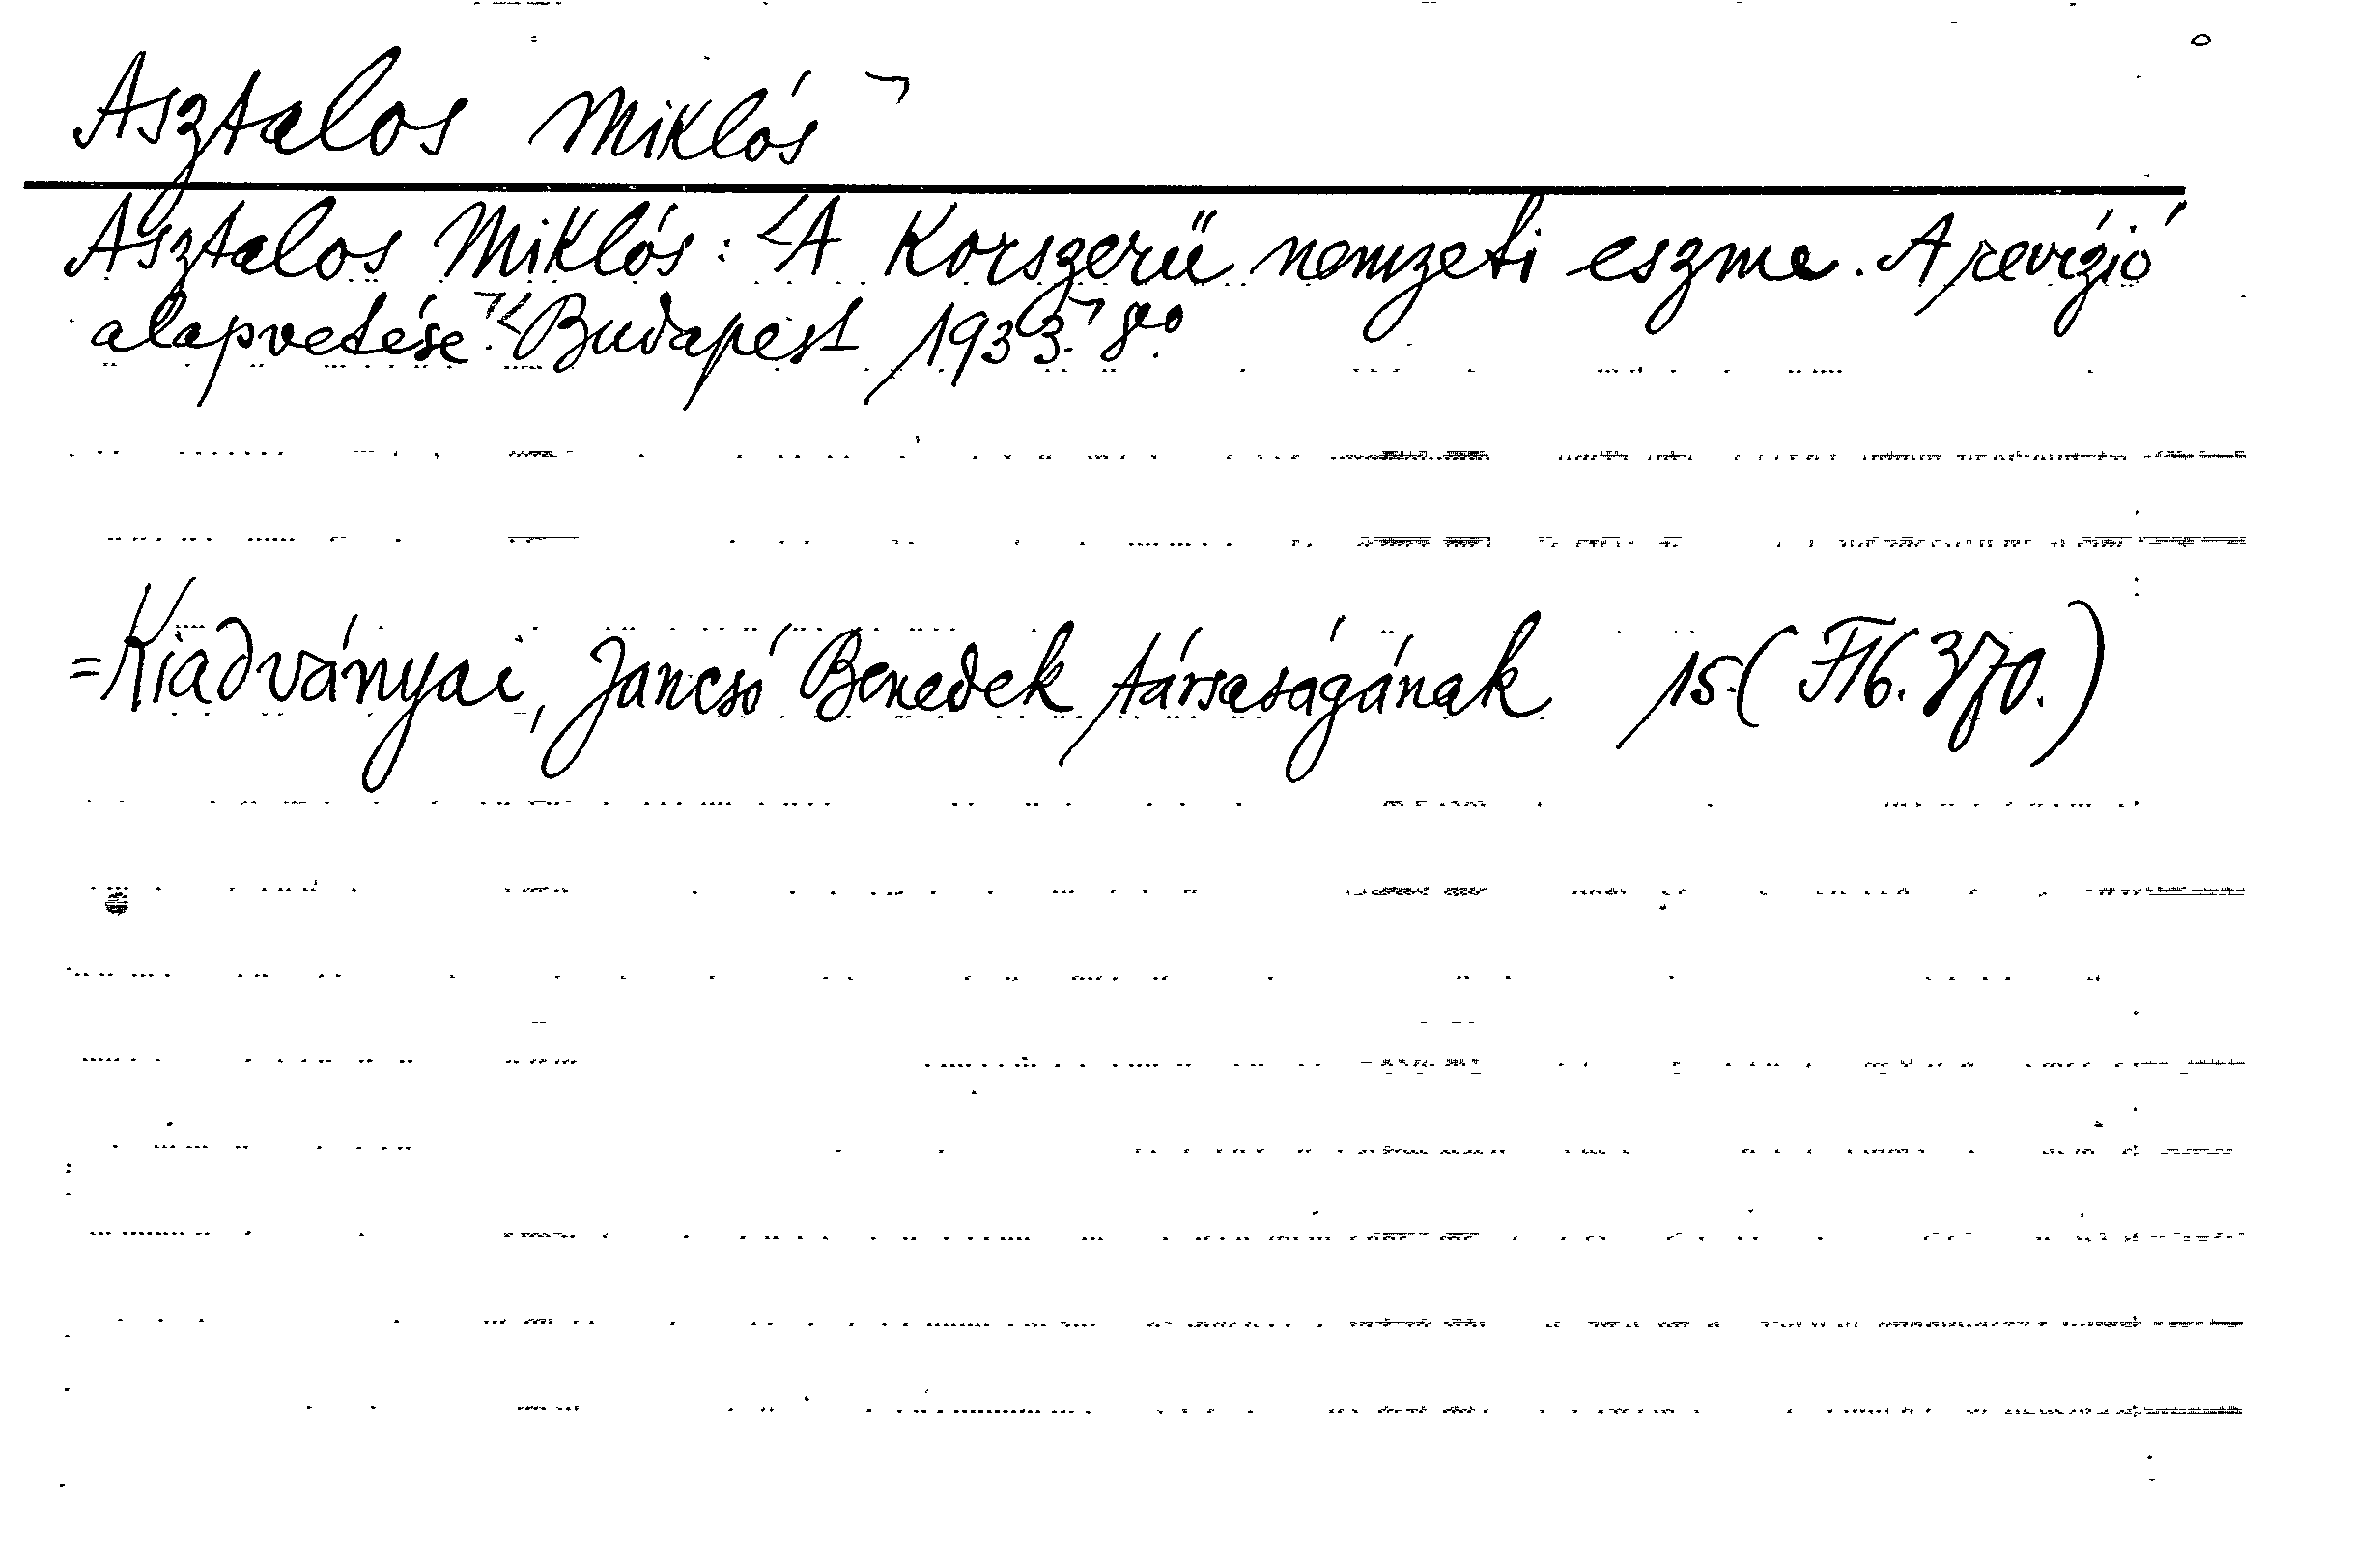 Asztalos Miklós ¬
Asztalos Miklós: <A Korszerű nemzeti eszme. A revízió
alapvetése.¬ <Budapest 1933.¬ 8vo.
=Kiadványai, Jancsó Benedek társaságának 15. (F16.370.)